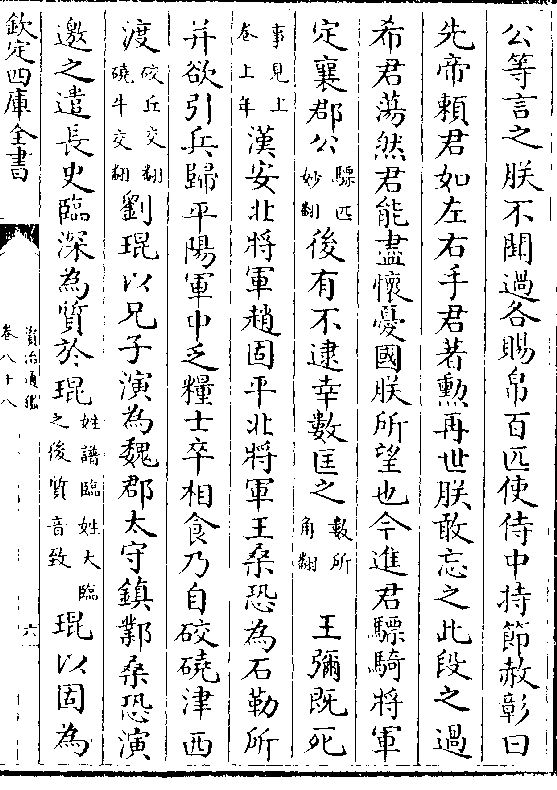 公等言之朕不聞過各賜帛百匹使侍中持節赦彰曰
先帝頼君如左右手君著勲再世朕敢忘之此段之過
希君蕩然君能盡懷憂國朕所望也今進君驃騎將軍
定襄郡公驃匹妙翻後有不逮幸數匡之數所角翻 王彌既死
事見上卷上年漢安北將軍趙固平北將軍王桑恐為石勒所
并欲引兵歸平陽軍中乏糧士卒相食乃自硗磝津西
渡硗丘交翻磝牛交翻劉琨以兄子演為魏郡太守鎮鄴桑恐演
邀之遣長史臨深為質於琨姓譜臨姓大臨之後質音致琨以固為
欽定四庫全書
資治通鑑
卷八十八
六